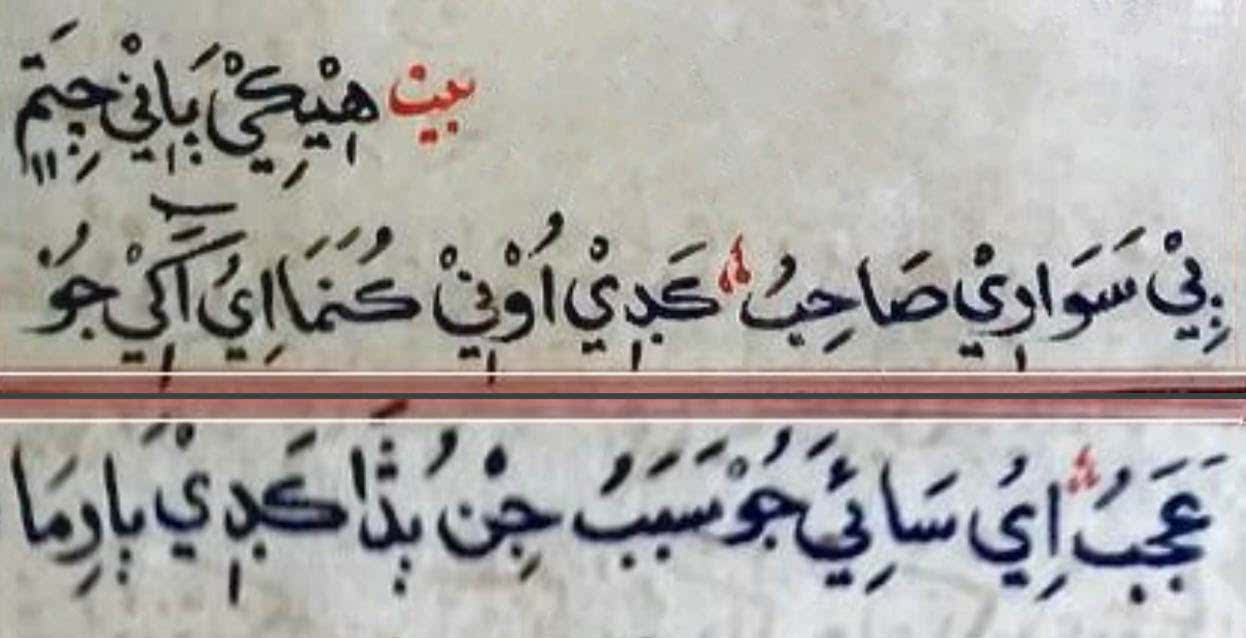 بيت هِيْكِيْ بَانِيْ جِتَمِ
بِيْ سَوَارِيْ صَاحِبُ كَدِيْ اُوْنِيْ كُنَمَا اِيُ آكِيْ جُوْ
عَجَبُ اِيُ سَائِيَ جُوْ سَبَبُ جِنُ بِڎَا كَدِيْ بَارِمَا